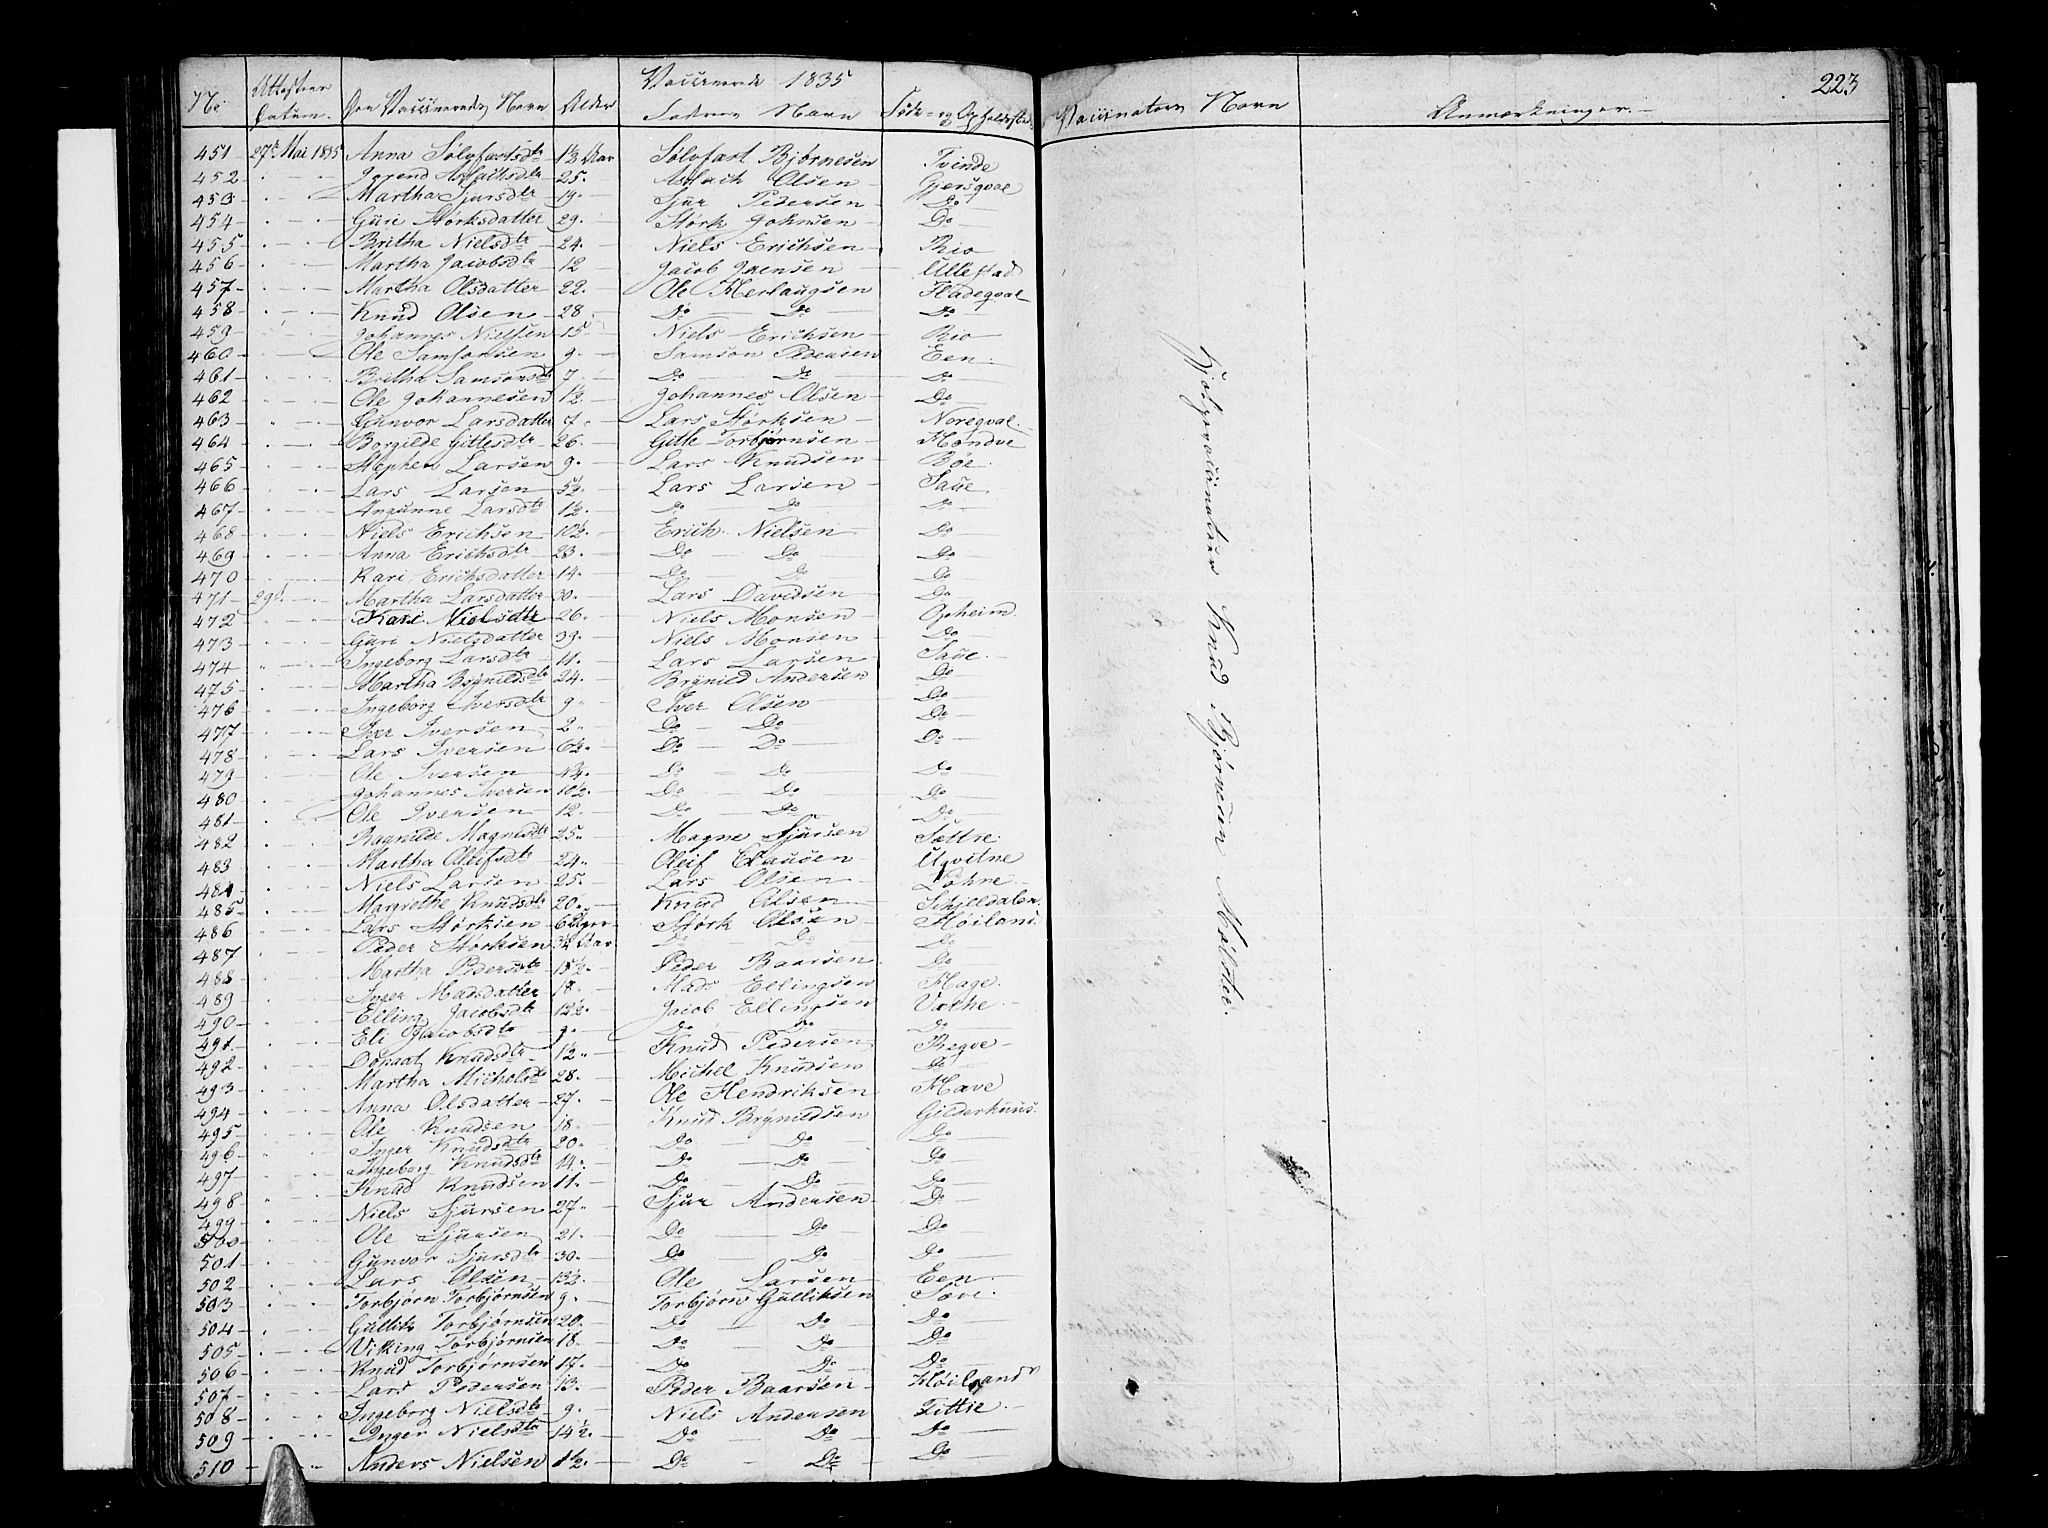 Vaccinerede 1835
223
No Attestens Datum. Den Vaccineredes Navn Alder Faderens Navn Føde- og Opholdssted Vaccinators Navn Anmærkninger.
451 27de Mai 1835 Anna Sølvfastsdtr 1½ Aar Sølvfast Bjørnesen Tvinde
452 25. Aslach Olsen Gjersqval
453 Martha Sjursdtr 19. Sjur Pedersen Do
454 Guri Størksdatter 29. Størk Johnsen Do
455 Britha Nielsdtr 24. Niels Erichsen Rio
456 Martha Jacobsdtr 12 Jacob Jaensen Ullestad
457 Martha Olsdatter 22. Ole Herlaugsen Fladeqval
458 Knud Olsen 28 Do Do Do
459 Johannes Nielsen 15 Niels Erichsen Rio
460 Ole Samsonsen 9. Samson Pedersen Een
461 Britha Samsonsdtr 7 Do Do Do
462 Ole Johannesen 1½. Johannes Olsen Do
463 Gunvor Larsdatter 7. Lars Størksen Noreqval
464 Borgilde Gitlesdtr 26. Gitle Torbjørnsen Møndve
465 Stephen Larsen 9. Lars Knudsen Bøe
466 Lars Larsen 5½. Lars Larsen Saue
467 Angunne Larsdtr 1½. Do Do Do
468 Niels Erichsen 10½. Erich Nielsen Do
469 Anna Erichsdtr 23. Do Do Do
470 Kari Erichsdatter 14. Do Do Do
471 29d. Martha Larsdatter 30. Lars Davidsen Do
472 Kari Nielsdtr 26. Niels Monsen Opheim
473 Guri Nielsdatter 39. Niels Monsen Do
474 Ingeborg Larsdtr 11. Lars Larsen Saue
475 Martha Brynildsdtr 24. Brynild Andersen Do
476 Ingeborg Iversdtr 9 Iver Olsen Do
477 Iver Iversen 2 Do Do Do
478 Lars Iversen 6½. Do Do Do
479 Ole Iversen Do Do Do
480 Johannes Iversen 10½. Do Do Do
481 Ole Iversen 12. Do Do Do
482 Ragnilde Magnesdtr 25 Magne Sjursen Sættre
483 Martha Oleifsdtr 24 Oleif Clausen Ugvitne
484 Niels Larsen 25. Lars Olsen Lohne
485 Margrethe Knudsdtr 20. Knud Olsen Schjelldalen
486 Lars Størksen 6 Uger Størk Olsen Høiland
487 Peder Størksen 3¼ Aar Do Do Do
488 Martha Pedersdtr 15½. Peder Baarsen Do
489 Inger Madsdatter 18. Mads Ellingsen Hage
490 Elling Jacobsdtr 12½. Jacob Ellingsen Vethe
491 Eli Jacobsdtr 9. Do Do Do
492 Knudsdtr 1½ Knud Pedersen Reqve
493 Martha Michelsdtr 28. Michel Knudsen Do
494 Anna Olsdatter 27. Ole Hendriksen Have
495 Ole Knudsen 18. Knud Brynildsen Gilderhuus
496 Inger Knudsdtr 20. Do Do Do
497 Ingeborg Knudsdtr 14. Do Do Do
498 Knud Knudsen 11. Do Do Do
499 Niels Sjursen 27 Sjur Andersen Do
500 Ole Sjursen 21. Do Do Do
501 Gunvor Sjursdtr 30. Do Do Do
502 Lars Olsen 13½. Ole Larsen Een
503 Torbjørn Torbjørnsen 9. Torbjørn Gulliksen Sæve
504 Gullik Torbjørnsen 20. Do Do Do
505 Viking Torbjørnsen 18. Do Do Do
506 Knud Torbjørnsen 17. Do Do Do
507 Lars Pedersen 13. Peder Baarsen Høiland
508 Ingeborg Nielsdtr 9. Niels Andersen Tittie
509 Inger Nielsdtr 14½. Do Do Do
510 Anders Nielsen 1½. Do Do Do
Hjelpevaccinateur Knud Bjørnesen Mølster.